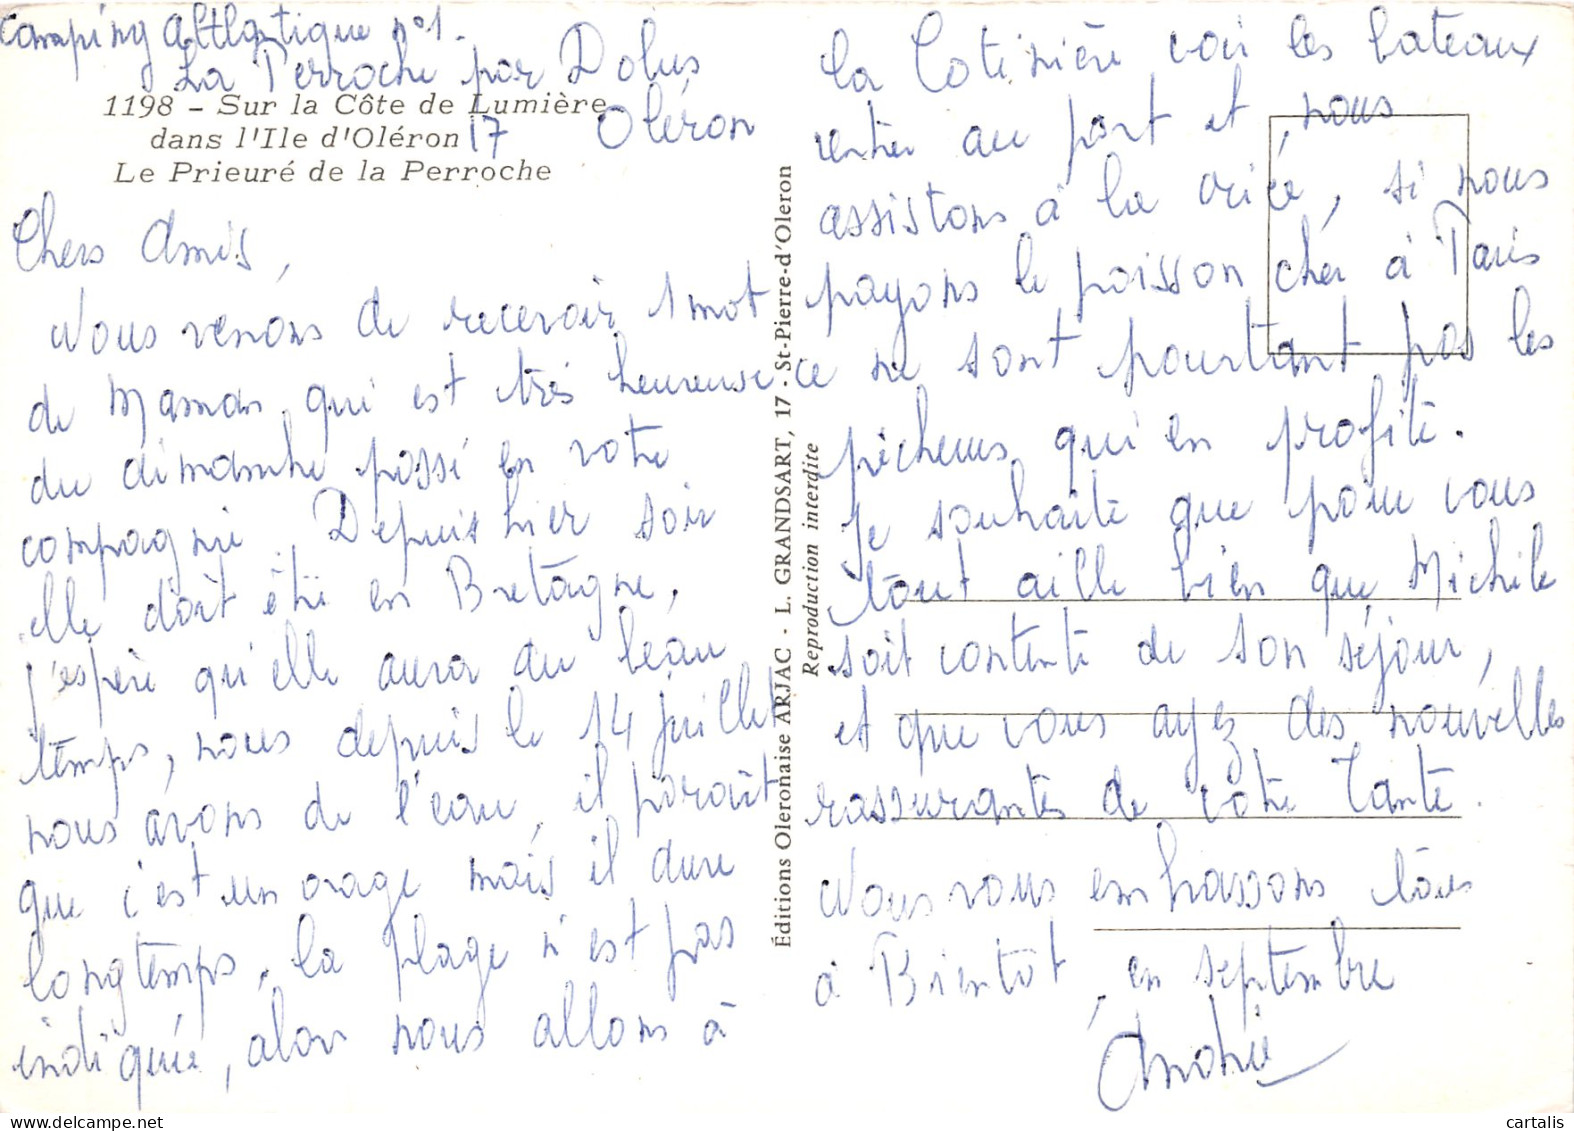 Camping Altlantique n°1.
La Perroche par Dolus
17 Oléron
1198 – Sur la Côte de Lumière
dans l'Ile d'Oléron
Le Prieuré de la Perroche
Chers Amis,
Nous venons de recevoir 1 mot
de Maman qui est très heureuse
du dimanche passé en votre
compagnie. Depuis hier soir
elle doit être en Bretagne,
j'espère qu'elle aura du beau
temps, nous depuis le 14 juillet
nous avons de l'eau, il paraît
que c'est un orage mais il dure
longtemps, la plage n'est pas
indiquée, alors nous allons à
la Cotinière voir les bateaux
rentrer au port et, nous
assistons à la criée, si nous
payons le poisson cher à Paris
ce ne sont pourtant pas les
pêcheurs qui en profite.
Je souhaite que pour vous
tout aille bien que Michèle
soit contente de son séjour,
et que vous ayez des nouvelles
rassurantes de votre Tante.
Nous vous embrassons tous
à Bientôt, en septembre
Andrée
Éditions Oleronaise ARJAC - L. GRANDSART, 17 - St-Pierre-d'Oleron
Reproduction interdite
cartalis